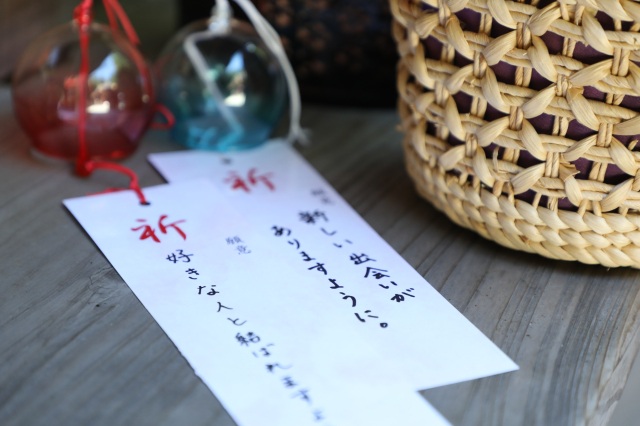 祈
願意
新しい出会いが
ありますように。
祈
願意
好きな人と結ばれます